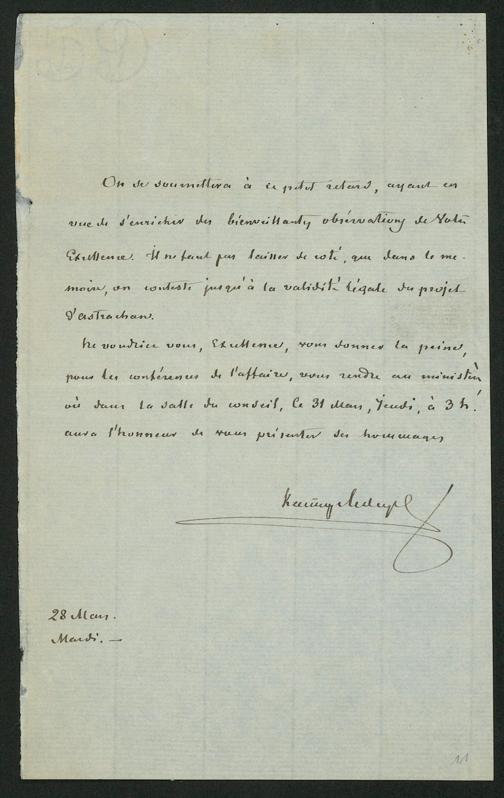 On se soumettra à ce petit retard, ayant en
vue de s'enrichir des bienveillantes observations de Votre
Excellence. Il ne faut pas laisser de coté, que dans le me-
moire, on conteste jusqu'à la validité légale du projet
d'astrachan.
Ne voudriez vous, Excellence, vous donner la peine,
pour les conférences de l'affaire, vous rendre au ministère
où dans la salle du conseil, le 31 Mars, Jeudi, à 3 h.
aura l'honneur de vous présenter ses hommages
28 Mars.
Mardi. —